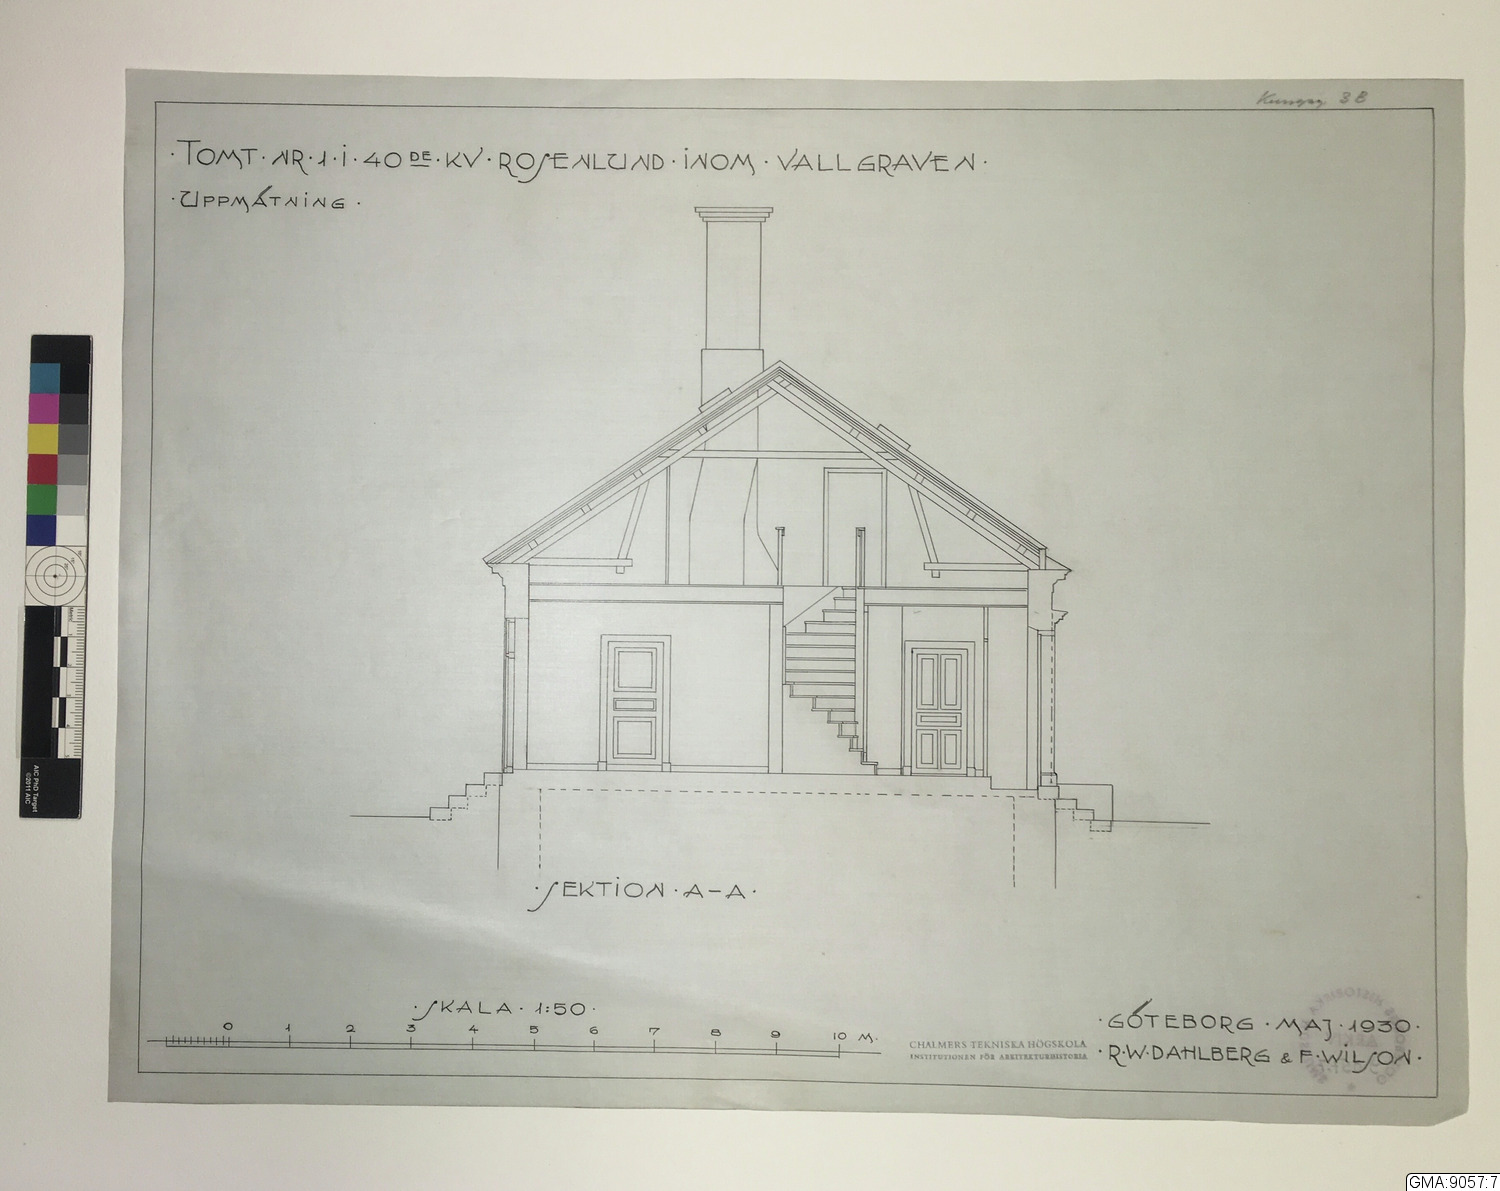 Kungsg 3B
·TOMT·NR·1·I·40DE·KV·ROSENLUND·INOM·VALLGRAVEN·
·UPPMÄTNING·
·SEKTION·A–A·
·SKALA·1:50·
0 1 2 3 4 5 6 7 8 9 10 M.
CHALMERS TEKNISKA HÖGSKOLA
INSTITUTIONEN FÖR ARKITEKTURHISTORIA
·GÖTEBORG·MAJ·1930·
·R·W·DAHLBERG & F·WILSON·
AIC PhD Target
©2011 AIC
GMA:9057:7